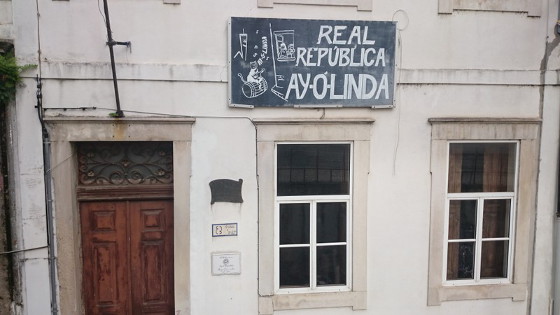 REAL
REPÚBLICA
AY-Ó-LINDA